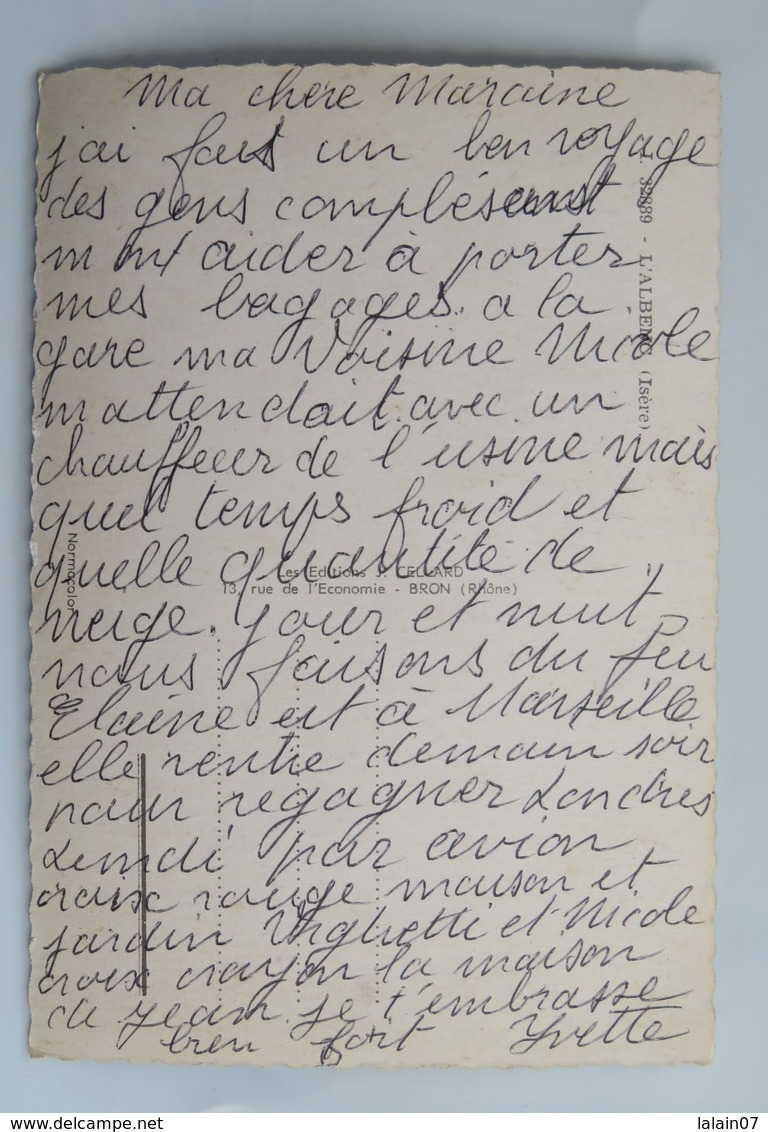 Ma chere Maraine
j'ai fait un bon voyage
des gens complésant
m'ont aider à porter
mes bagages. a la
gare ma Voisine Nicole
m attendait avec un
chauffeur de l'usine mais
quel temps froid et
quelle quantité de
neige. jour et nuit
nous faisons du feu
Elaine est à Marseille
elle rentre demain soir
pour regagner Londres
Lundi par avion
croix rouge maison et
jardin Vighetti et Nicole
croix crayon la maison
de Jean je t'embrasse
bien fort Yvette
J. 32889 - L'ALBENC (Isère)
Normacolor
Les Editions J. CELLARD
13, rue de l'Economie - BRON (Rhône)
www.delcampe.net
lalain07